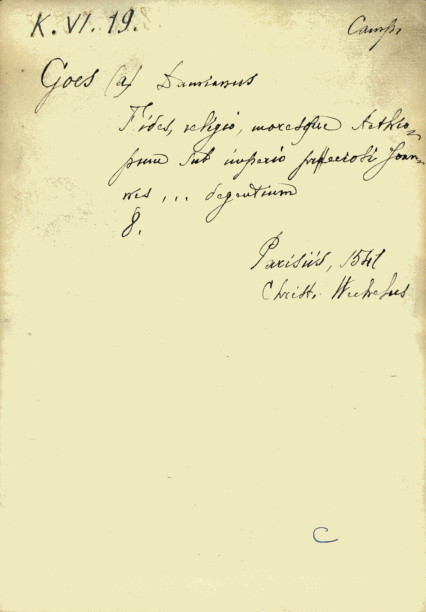 K. VI. 19.
Camp.
Goes (a) Damianus
Fides, religio, moresque Aethio-
pum sub imperio preciosi Joan-
nes ... degentium
8.
Parisiis, 1541
Christ. Wechelus
C